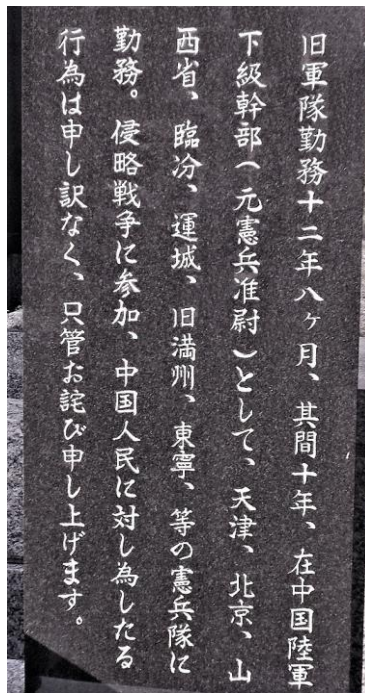 旧軍隊勤務十二年八ヶ月、其間十年、在中国陸軍
下級幹部(元憲兵准尉)として、天津、北京、山
西省、臨汾、運城、旧満州、東寧、等の憲兵隊に
勤務。侵略戦争に参加、中国人民に対し為したる
行為は申し訳なく、只管お詫び申し上げます。